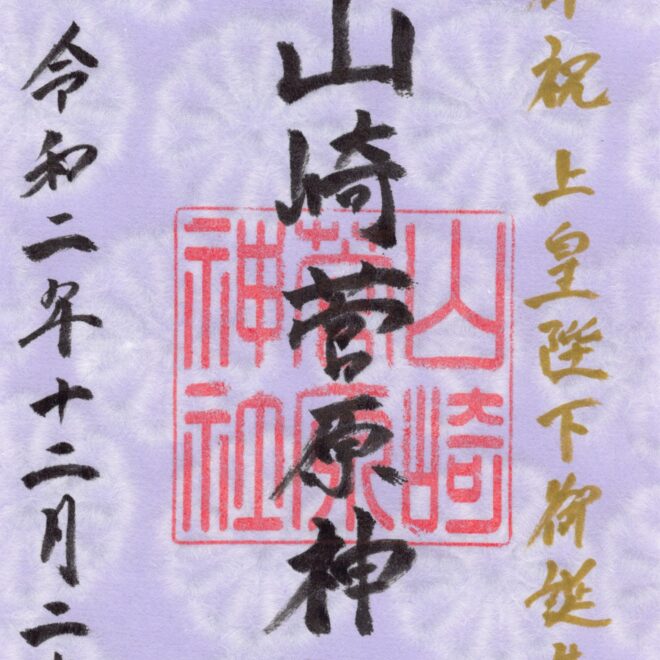 祝 上皇陛下御誕
山崎菅原神
山崎菅原神社
令和二年十二月二